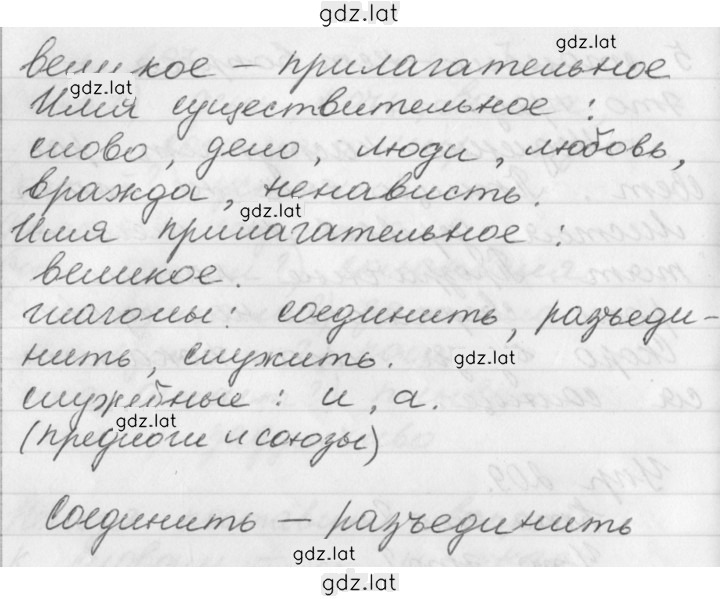 gdz.lat
gdz.lat
великое – прилагательное
gdz.lat
Имя существительное :
слово, дело, люди, любовь,
вражда, ненависть.
gdz.lat
Имя прилагательное :
великое.
глаголы : соединить, разъеди-
нить, служить.
gdz.lat
служебные : и, а.
gdz.lat
(предлоги и союзы)
Соединить – разъединить
gdz.lat
gdz.lat